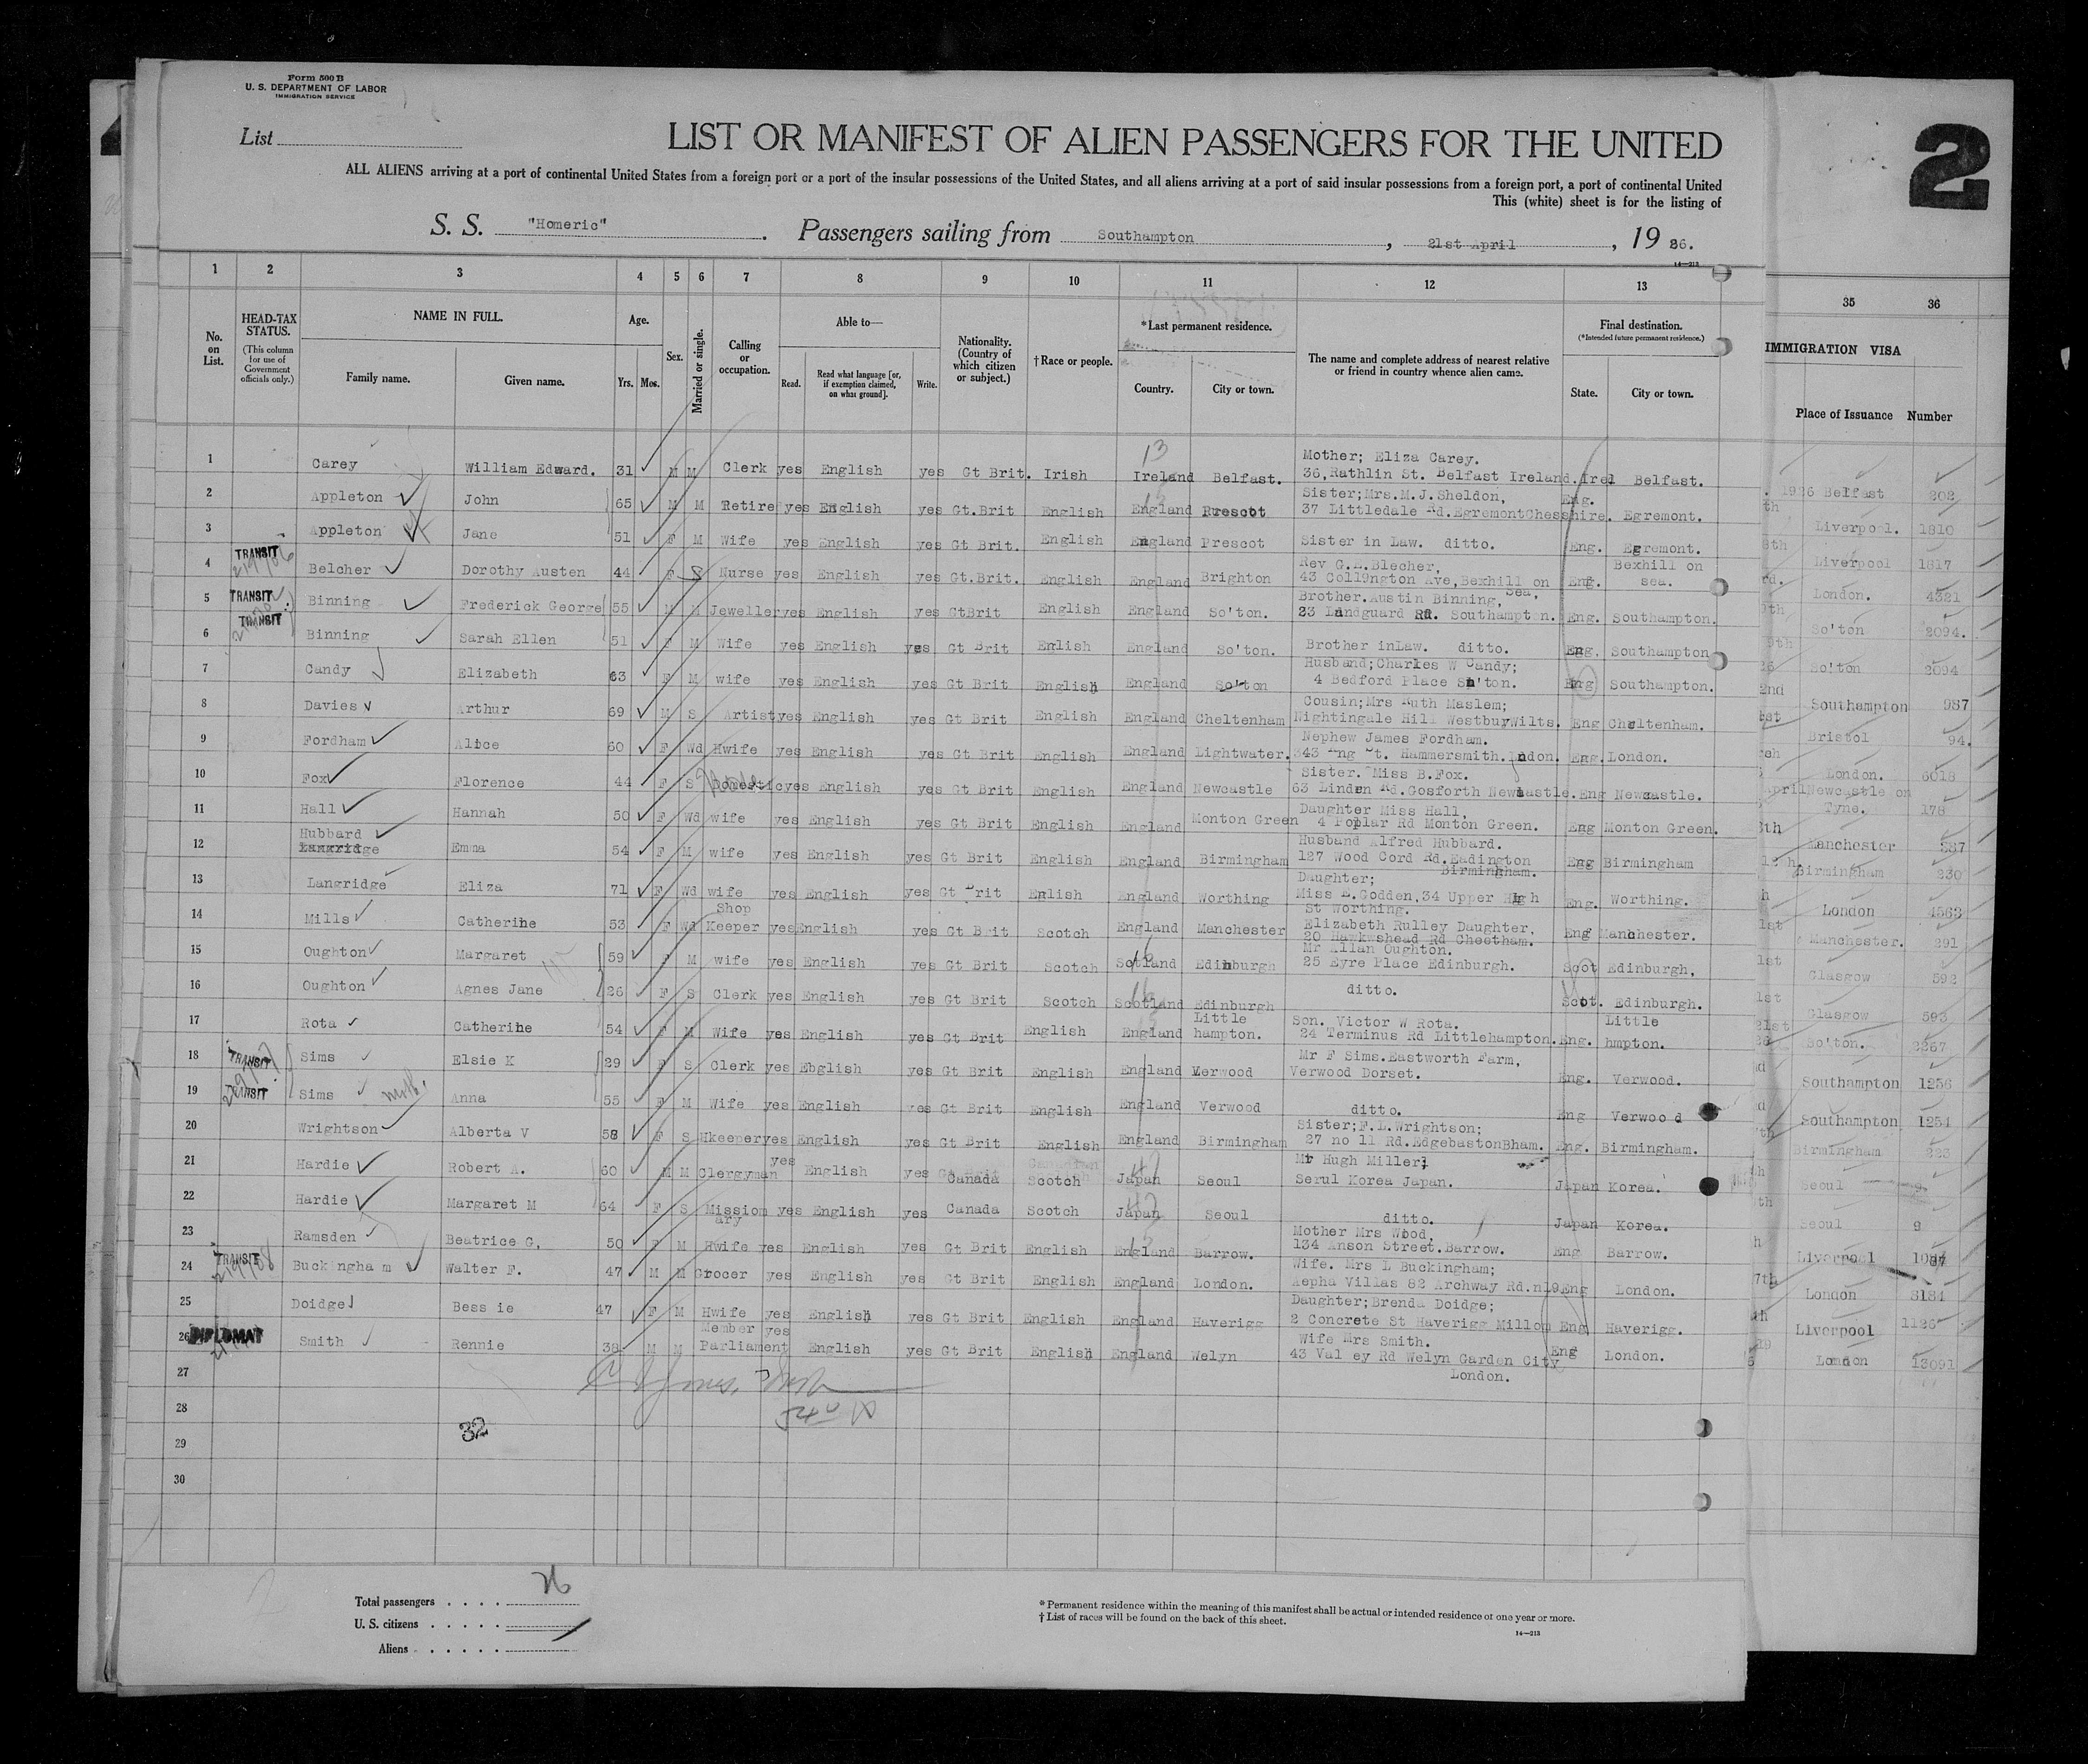 Form 500 B
U. S. DEPARTMENT OF LABOR
IMMIGRATION SERVICE
2
List
LIST OR MANIFEST OF ALIEN PASSENGERS FOR THE UNITED
ALL ALIENS arriving at a port of continental United States from a foreign port or a port of the insular possessions of the United States, and all aliens arriving at a port of said insular possessions from a foreign port, a port of continental United
This (white) sheet is for the listing of
S. S. "Homeric". Passengers sailing from Southampton, 21st April, 19 26.
14—213
1 2 3 4 5 6 7 8 9 10 11 12 13 35 36
No. on List.
HEAD-TAX STATUS.
(This column for use of Government officials only.)
NAME IN FULL.
Family name. Given name.
Age.
Yrs. Mos.
Sex.
Married or single.
Calling or occupation.
Able to—
Read. Read what language [or, if exemption claimed, on what ground]. Write.
Nationality. (Country of which citizen or subject.)
†Race or people.
*Last permanent residence.
Country. City or town.
The name and complete address of nearest relative or friend in country whence alien came.
Final destination.
(*Intended future permanent residence.)
State. City or town.
IMMIGRATION VISA
Place of Issuance Number
13
Mother; Eliza Carey.
1 Carey William Edward. 31 M M Clerk yes English yes Gt Brit. Irish Ireland Belfast. 36,Rathlin St. Belfast Ireland. Irel Belfast. 1926 Belfast 202
Sister;Mrs.M.J.Sheldon,
2 Appleton John 65 M M Retire yes English yes Gt.Brit English England Prescot 37 Littledale Rd.EgremontChesshire. Eng. Egremont. Liverpool. 1810
3 Appleton Jane 51 F M Wife yes English yes Gt Brit. English England Prescot Sister in Law. ditto. Eng. Egremont. Liverpool 1817
TRANSIT
Rev G.L.Blecher, Bexhill on
4 Belcher Dorothy Austen 44 F S Nurse yes English yes Gt.Brit. English England Brighton 43 Coll9ngton Ave,Bexhill on Sea, Eng. sea. London. 4321
TRANSIT
Brother.Austin Binning,
5 Binning Frederick George 55 M M Jeweller yes English yes GtBrit English England So'ton. 23 Landguard Rd. Southampton. Eng. Southampton. So'ton 2094.
TRANSIT
6 Binning Sarah Ellen 51 F M Wife yes English yes Gt Brit English England So'ton. Brother inLaw. ditto. Eng. Southampton So'ton 2094
Husband;Charles W Candy;
7 Candy Elizabeth 63 F M wife yes English yes Gt Brit English England So'ton 4 Bedford Place So'ton. Eng Southampton. Southampton 987
Cousin;Mrs Ruth Maslem;
8 Davies Arthur 69 M S Artist yes English yes Gt Brit English England Cheltenham Nightingale Hill WestbuyWilts. Eng Cheltenham. Bristol 94.
Nephew James Fordham.
9 Fordham Alice 60 F Wd Hwife yes English yes Gt Brit English England Lightwater. Hammersmith. Eng. London. London. 6018
Sister. Miss B.Fox.
10 Fox Florence 44 F S Domestic yes English yes Gt Brit English England Newcastle 63 Linden Rd.Gosforth Newcastle. Eng Newcastle. April Newcastle on Tyne. 178
Daughter Miss Hall,
11 Hall Hannah 50 F Wd wife yes English yes Gt Brit English England Monton Green 4 Poplar Rd Monton Green. Eng Monton Green. Manchester 587
Hubbard Husband Alfred Hubbard.
12 Langridge Emma 54 F M wife yes English yes Gt Brit English England Birmingham 127 Wood Cord Rd.Eadington Birmingham. Eng Birmingham Birmingham 230
Daughter;
13 Langridge Eliza 71 F Wd wife yes English yes Gt Brit Enlish England Worthing Miss E.Godden,34 Upper High St Worthing. Eng. Worthing. London 4563
Shop Elizabeth Rulley Daughter,
14 Mills Catherine 53 F Wd Keeper yes English yes Gt Brit Scotch England Manchester 20 Hawkwshead Rd Cheetham. Eng Manchester. Manchester. 291
Mr Allan Oughton.
15 Oughton Margaret 59 F M wife yes English yes Gt Brit Scotch Scotland Edinburgh 25 Eyre Place Edinburgh. Scot Edinburgh, Glasgow 592
16 Oughton Agnes Jane 26 F S Clerk yes English yes Gt Brit Scotch Scotland Edinburgh ditto. Scot. Edinburgh. Glasgow 593
Little Son. Victor W Rota. Little
17 Rota Catherine 54 F M Wife yes English yes Gt Brit English England hampton. 24 Terminus Rd Littlehampton. Eng. hmpton. So'ton. 2267
TRANSIT
Mr F Sims.Eastworth Farm,
18 Sims Elsie K 29 F S Clerk yes Ebglish yes Gt Brit English England Verwood Verwood Dorset. Eng. Verwood. Southampton 1256
TRANSIT
19 Sims Anna 55 F M Wife yes English yes Gt Brit English England Verwood ditto. Eng Verwoo d Southampton 1254
Sister;F.L.Wrightson;
20 Wrightson Alberta V 58 F S Hkeeper yes English yes Gt Brit English England Birmingham 27 no 11 Rd.EdgebastonBham. Eng. Birmingham. Birmingham 223
Mr Hugh Miller;
21 Hardie Robert A. 60 M M Clergyman yes English yes Canada Scotch Japan Seoul Serul Korea Japan. Japan Korea. Seoul
22 Hardie Margaret M 64 F S Mission ary yes English yes Canada Scotch Japan Seoul ditto. Japan Korea. Seoul 9
Mother Mrs Wood,
23 Ramsden Beatrice G, 50 F M Hwife yes English yes Gt Brit English England Barrow. 134 Anson Street.Barrow. Eng Barrow. Liverpool
TRANSIT
Wife. Mrs L Buckingham;
24 Buckingha m Walter F. 47 M M Grocer yes English yes Gt Brit English England London. Aepha Villas 82 Archway Rd.n19 Eng London. London 8184
Daughter;Brenda Doidge;
25 Doidge Bess ie 47 F M Hwife yes English yes Gt Brit English England Haverigg 2 Concrete St Haverigg Millom Eng Haverigg. Liverpool 1126
DIPLOMAT
Member yes Wife Mrs Smith.
26 Smith Rennie 38 M M Parliament English yes Gt Brit English England Welyn 43 Val ey Rd Welyn Garden City London. Eng London. London 13091
27
28
32
29
30
Total passengers . . . . 26
U. S. citizens . . . . .
Aliens . . . . .
* Permanent residence within the meaning of this manifest shall be actual or intended residence of one year or more.
† List of races will be found on the back of this sheet.
14—213